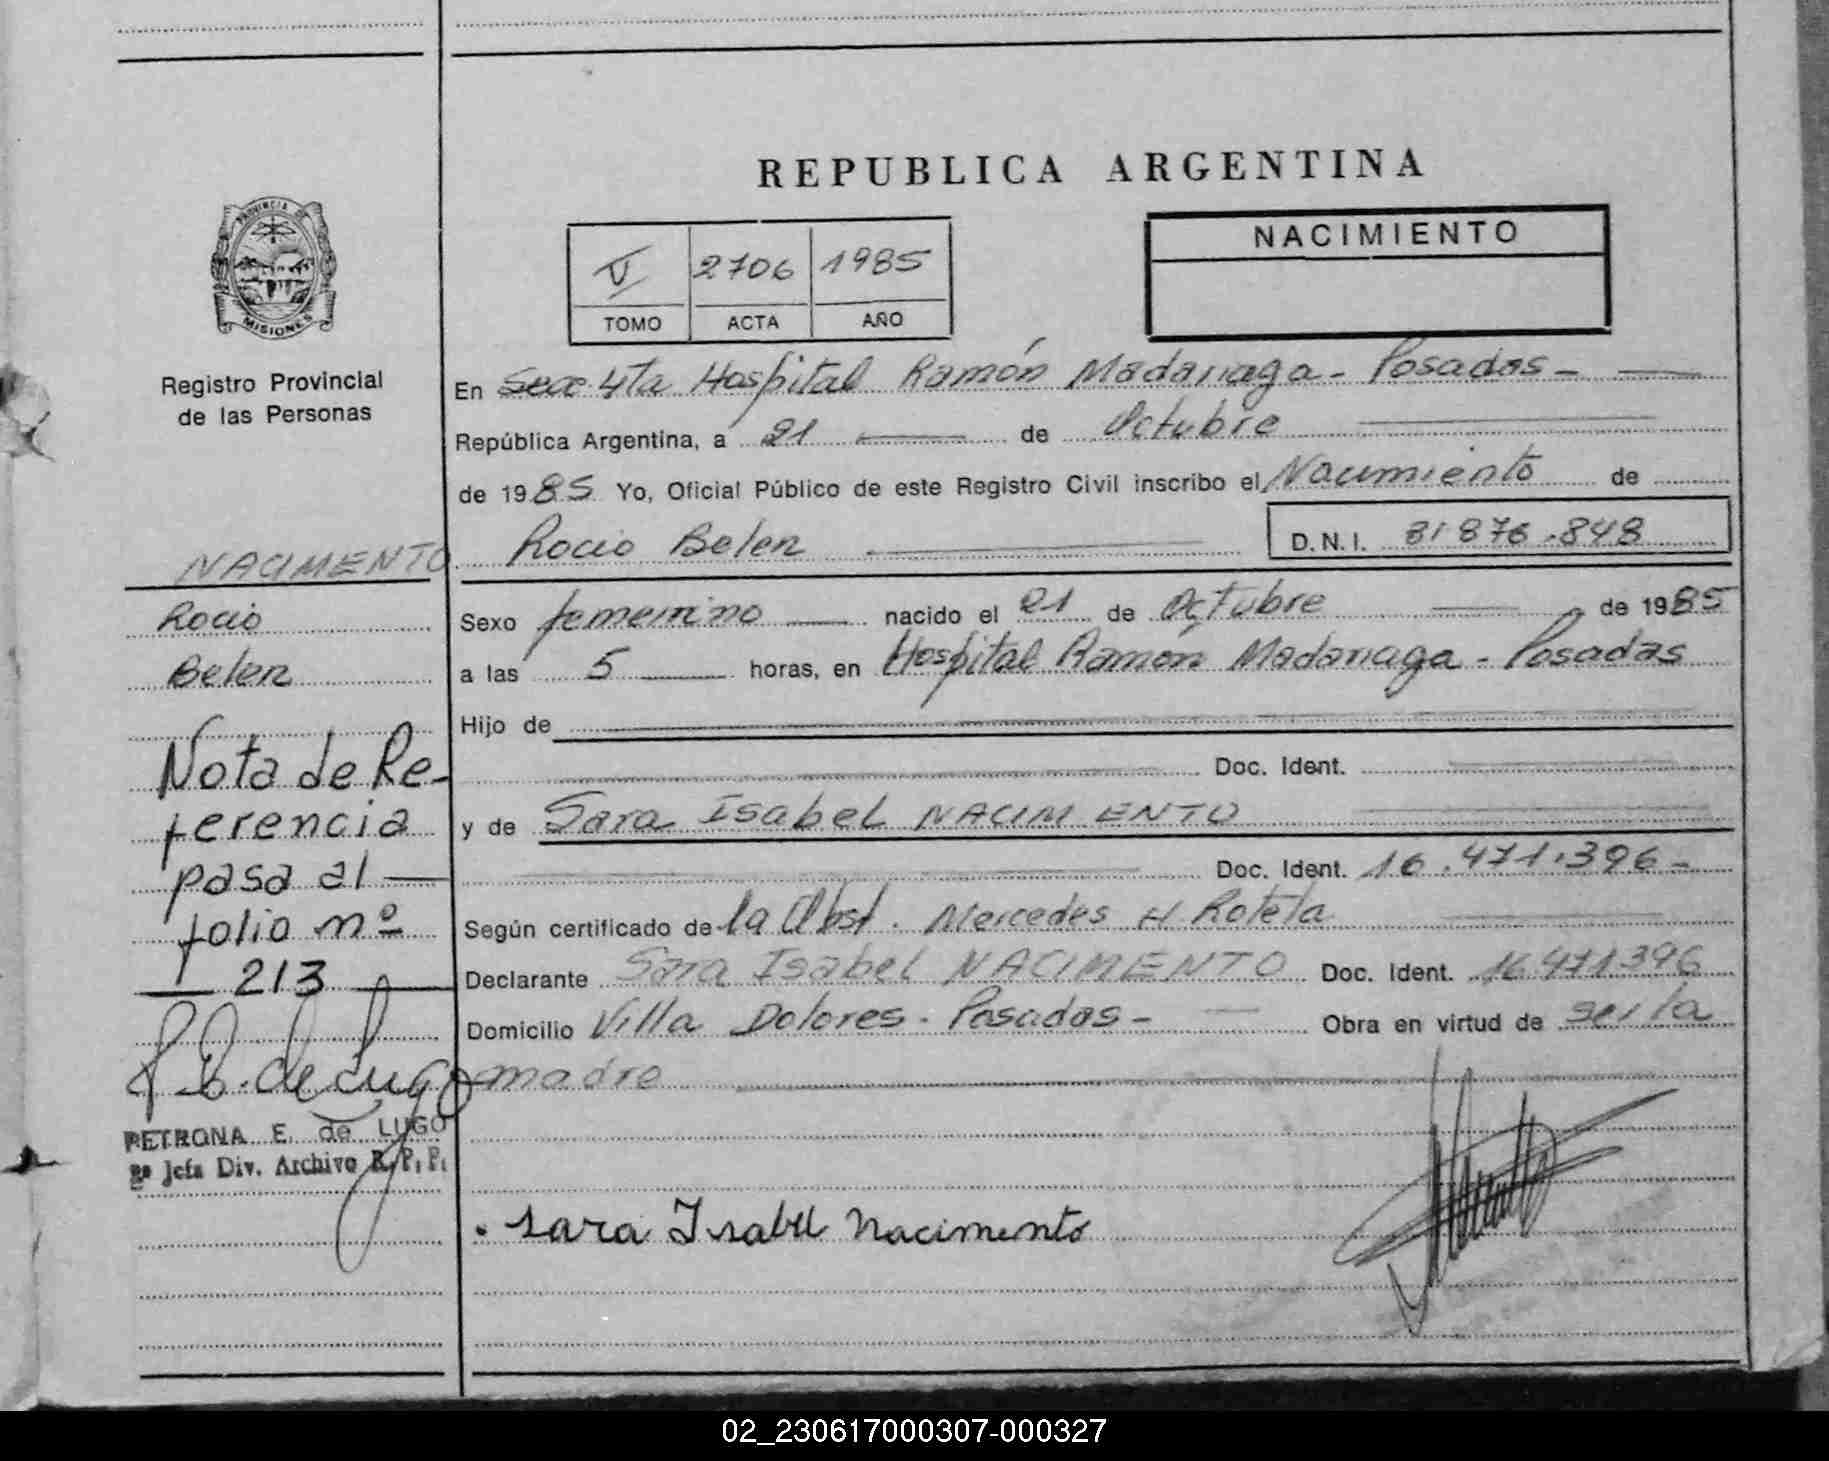 REPUBLICA ARGENTINA
PROVINCIA DE
MISIONES
Registro Provincial
de las Personas
V 2706 1985
TOMO ACTA AÑO
NACIMIENTO
En Secc 4ta Hospital Ramón Madariaga - Posadas -
República Argentina, a 21 de Octubre
de 1985 Yo, Oficial Público de este Registro Civil inscribo el Nacimiento de
Rocio Belen D.N.I. 31876.848
Sexo femenino nacido el 21 de Octubre de 1985
a las 5 horas, en Hospital Ramón Madariaga - Posadas
Hijo de
Doc. Ident.
y de Sara Isabel NACIMENTO
Doc. Ident. 16.471.396-
Según certificado de la Obst. Mercedes H Rotela
Declarante Sara Isabel NACIMENTO Doc. Ident. 16.471396
Domicilio Villa Dolores - Posadas - Obra en virtud de ser la
madre
Sara Isabel Nacimento
NACIMENTO
Rocio
Belen
Nota de Re-
ferencia
pasa al
folio nº
213
P. E. de Lugo
PETRONA E. de LUGO
2ª Jefa Div. Archivo R.P.P.
02_230617000307-000327